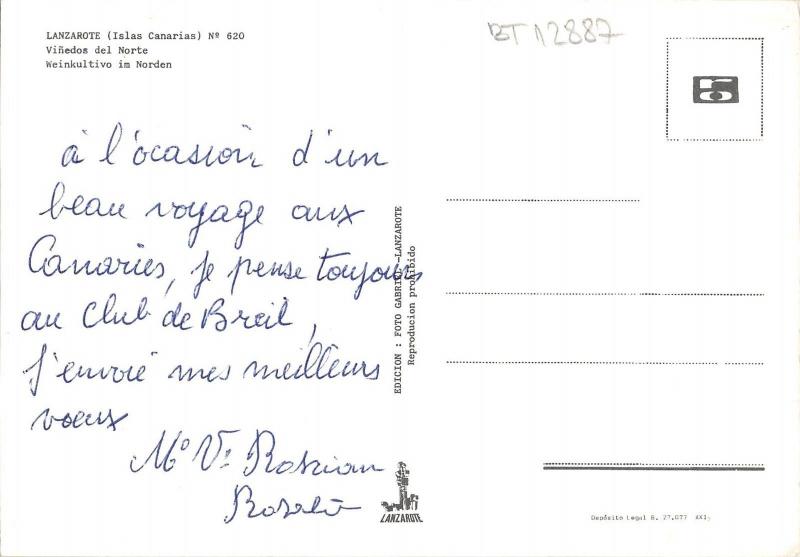 LANZAROTE (Islas Canarias) Nº 620
Viñedos del Norte
Weinkultivo im Norden
BT 12887
à l'ocasion d'un
beau voyage aux
Canaries, je pense toujours
au Club de Breil,
j'envoie mes meilleurs
voeux
EDICION : FOTO GABRIEL-LANZAROTE
Reproducion prohibido
LANZAROTE
Depósito Legal B. 27.077 XXI